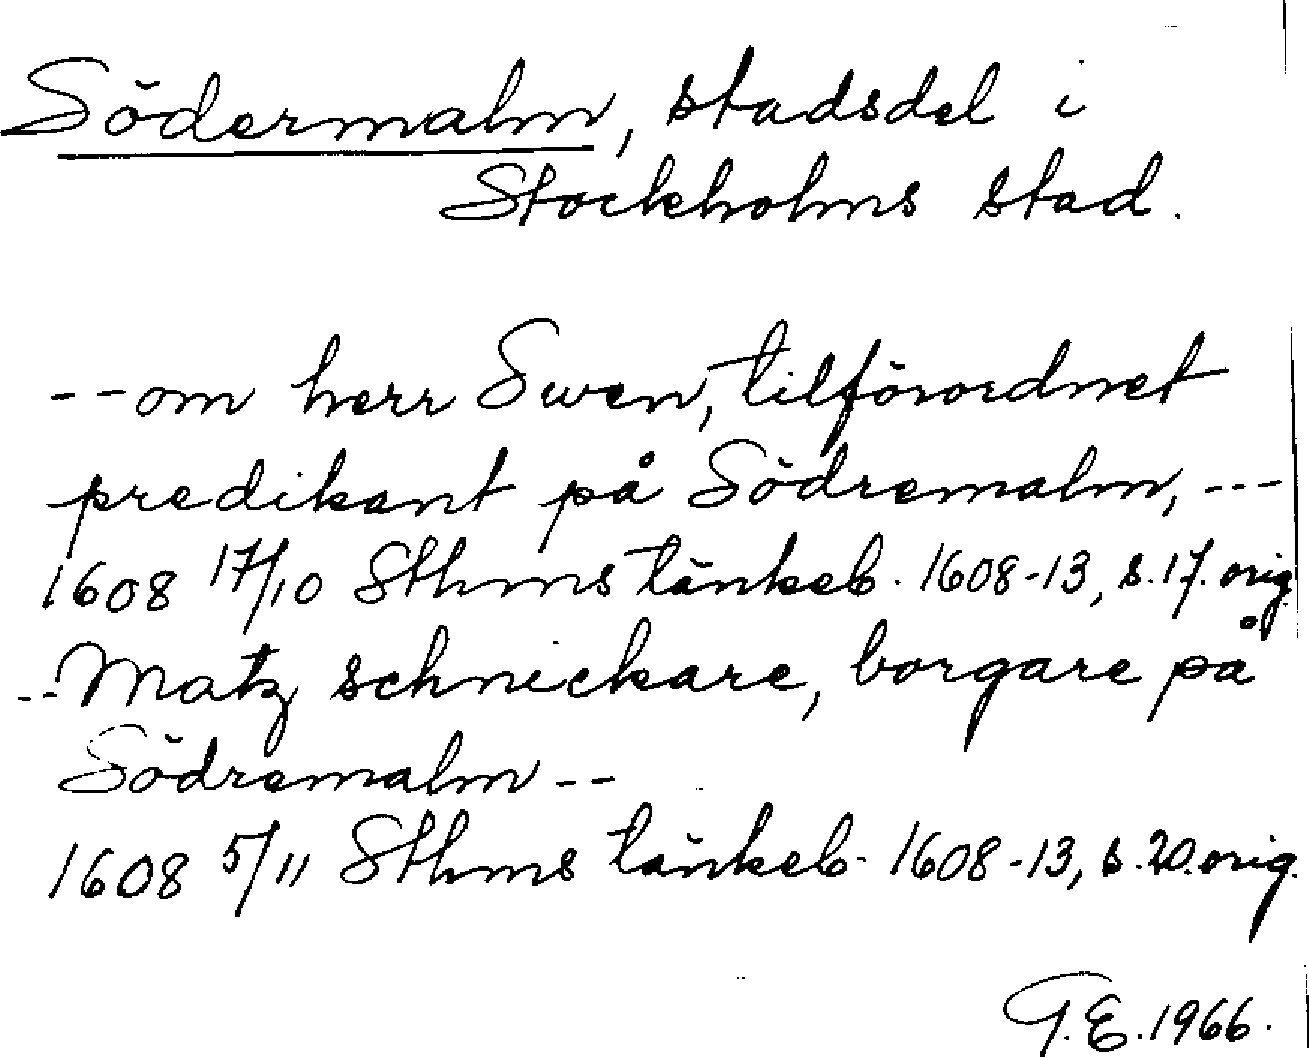 Södermalm, stadsdel i
Stockholms stad.
--om herr Swen, tilförordnet
predikant på Södremalm, ---
1608 17/10 Sthms tänkeb. 1608-13, s. 17. orig.
--Matz schnickare, borgare på
Södremalm--
1608 5/11 Sthms tänkeb. 1608-13, s. 20. orig.
G.E. 1966.